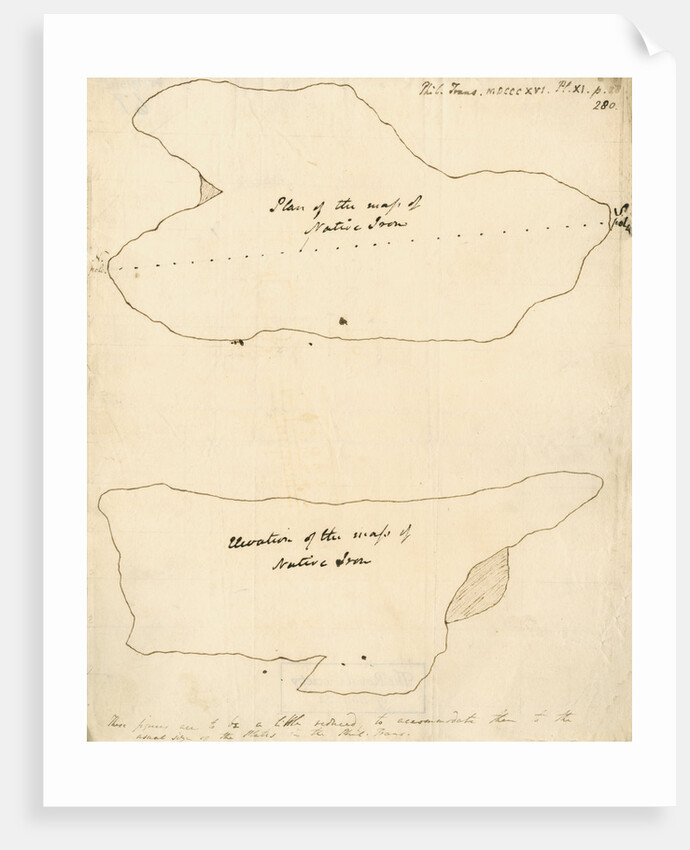 Phil. Trans. MDCCCXVI. Pl. XI. p.
280.
Plan of the maſs of
Native Iron
S.
pole
N.
pole.
Elevation of the maſs of
Native Iron
These figures are to be a little reduced, to accommodate them to the
usual size of the Plates in the Phil. Trans.